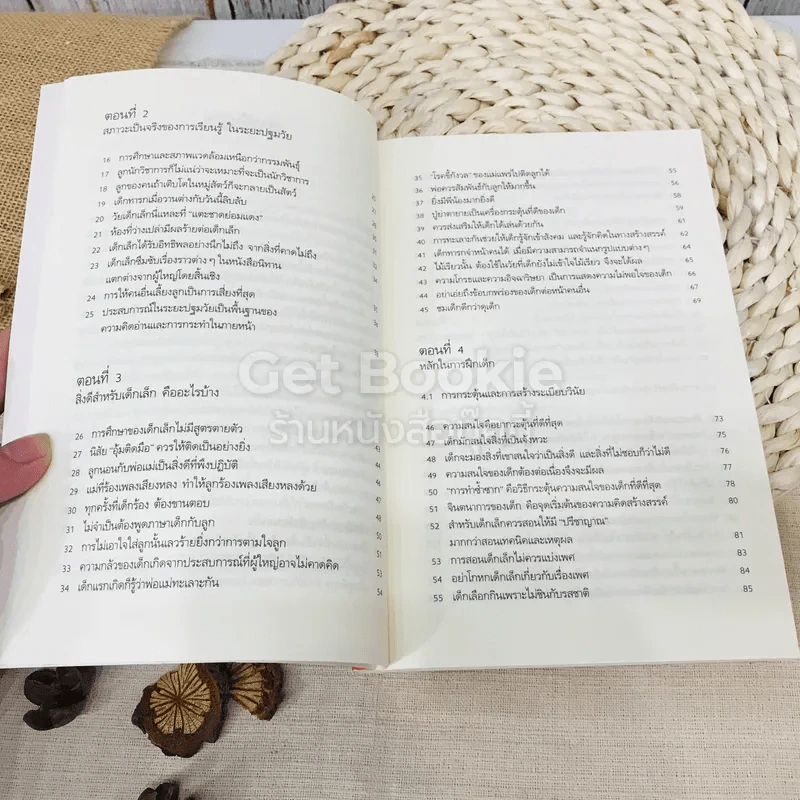 ตอนที่ 2
สภาวะเป็นจริงของการเรียนรู้ ในระยะปฐมวัย
16 การศึกษาและสภาพแวดล้อมเหนือกว่ากรรมพันธุ์
17 ลูกนักวิชาการก็ไม่แน่ว่าจะเหมาะที่จะเป็นนักวิชาการ
18 ลูกของคนถ้าเติบโตในหมู่สัตว์ก็จะกลายเป็นสัตว์
19 เด็กทารกเมื่อวานต่างกับวันนี้ลิบลับ
20 วัยเด็กเล็กนี่แหละที่ "แตะชาดย่อมแดง"
21 ห้องที่ว่างเปล่ามีผลร้ายต่อเด็กเล็ก
22 เด็กเล็กได้รับอิทธิพลอย่างนึกไม่ถึง จากสิ่งที่คาดไม่ถึง
23 เด็กเล็กซึมซับเรื่องราวต่าง ๆ ในหนังสือนิทาน
แตกต่างจากผู้ใหญ่โดยสิ้นเชิง
24 การให้คนอื่นเลี้ยงลูกเป็นการเสี่ยงที่สุด
25 ประสบการณ์ในระยะปฐมวัยเป็นพื้นฐานของ
ความคิดอ่านและการกระทำในภายหน้า
ตอนที่ 3
สิ่งดีสำหรับเด็กเล็ก คืออะไรบ้าง
26 การศึกษาของเด็กเล็กไม่มีสูตรตายตัว
27 นิสัย "อุ้มติดมือ" ควรให้ติดเป็นอย่างยิ่ง
28 ลูกนอนกับพ่อแม่เป็นสิ่งดีที่พึงปฏิบัติ
29 แม่ที่ร้องเพลงเสียงหลง ทำให้ลูกร้องเพลงเสียงหลงด้วย
30 ทุกครั้งที่เด็กร้อง ต้องขานตอบ
31 ไม่จำเป็นต้องพูดภาษาเด็กกับลูก
32 การไม่เอาใจใส่ลูกนั้นเลวร้ายยิ่งกว่าการตามใจลูก
33 ความกลัวของเด็กเกิดจากประสบการณ์ที่ผู้ใหญ่อาจไม่คาดคิด 54
34 เด็กแรกเกิดก็รู้ว่าพ่อแม่ทะเลาะกัน 54
35 "โรคขี้กังวล" ของแม่แพร่ไปติดลูกได้ 55
36 พ่อควรสัมพันธ์กับลูกให้มากขึ้น 56
37 ยิ่งมีพี่น้องมากยิ่งดี 59
38 ปู่ย่าตายายเป็นเครื่องกระตุ้นที่ดีของเด็ก 60
39 ควรส่งเสริมให้เด็กได้เล่นด้วยกัน 61
40 การทะเลาะกันช่วยให้เด็กรู้จักเข้าสังคม และรู้จักคิดในทางสร้างสรรค์ 62
41 เด็กทารกจำหน้าคนได้ เมื่อมีความสามารถจำแนกรูปแบบต่าง ๆ 64
42 ไม้เรียวนั้น ต้องใช้ในวัยที่เด็กยังไม่เข้าใจไม้เรียว จึงจะได้ผล 65
43 ความโกรธและความอิจฉาริษยา เป็นการแสดงความไม่พอใจของเด็ก 66
44 อย่าเอ่ยถึงข้อบกพร่องของเด็กต่อหน้าคนอื่น 67
45 ชมเด็กดีกว่าดุเด็ก 69
ตอนที่ 4
หลักในการฝึกเด็ก
4.1 การกระตุ้นและการสร้างระเบียบวินัย
46 ความสนใจคือยากระตุ้นที่ดีที่สุด 73
47 เด็กมักสนใจสิ่งที่เป็นจังหวะ 75
48 เด็กจะมองสิ่งที่เขาสนใจว่าเป็นสิ่งดี และสิ่งที่ไม่ชอบก็ว่าไม่ดี 76
49 ความสนใจของเด็กต้องต่อเนื่องจึงจะมีผล 77
50 "การทำซ้ำซาก" คือวิธีกระตุ้นความสนใจของเด็กที่ดีที่สุด 78
51 จินตนาการของเด็ก คือจุดเริ่มต้นของความคิดสร้างสรรค์ 80
52 สำหรับเด็กเล็กควรสอนให้มี "ปรีชาญาณ"
มากกว่าสอนเทคนิคและเหตุผล 81
53 การสอนเด็กเล็กไม่ควรแบ่งเพศ 83
54 อย่าโกหกเด็กเล็กเกี่ยวกับเรื่องเพศ 84
55 เด็กเลือกกินเพราะไม่ชินกับรสชาติ 85
Get Bookie